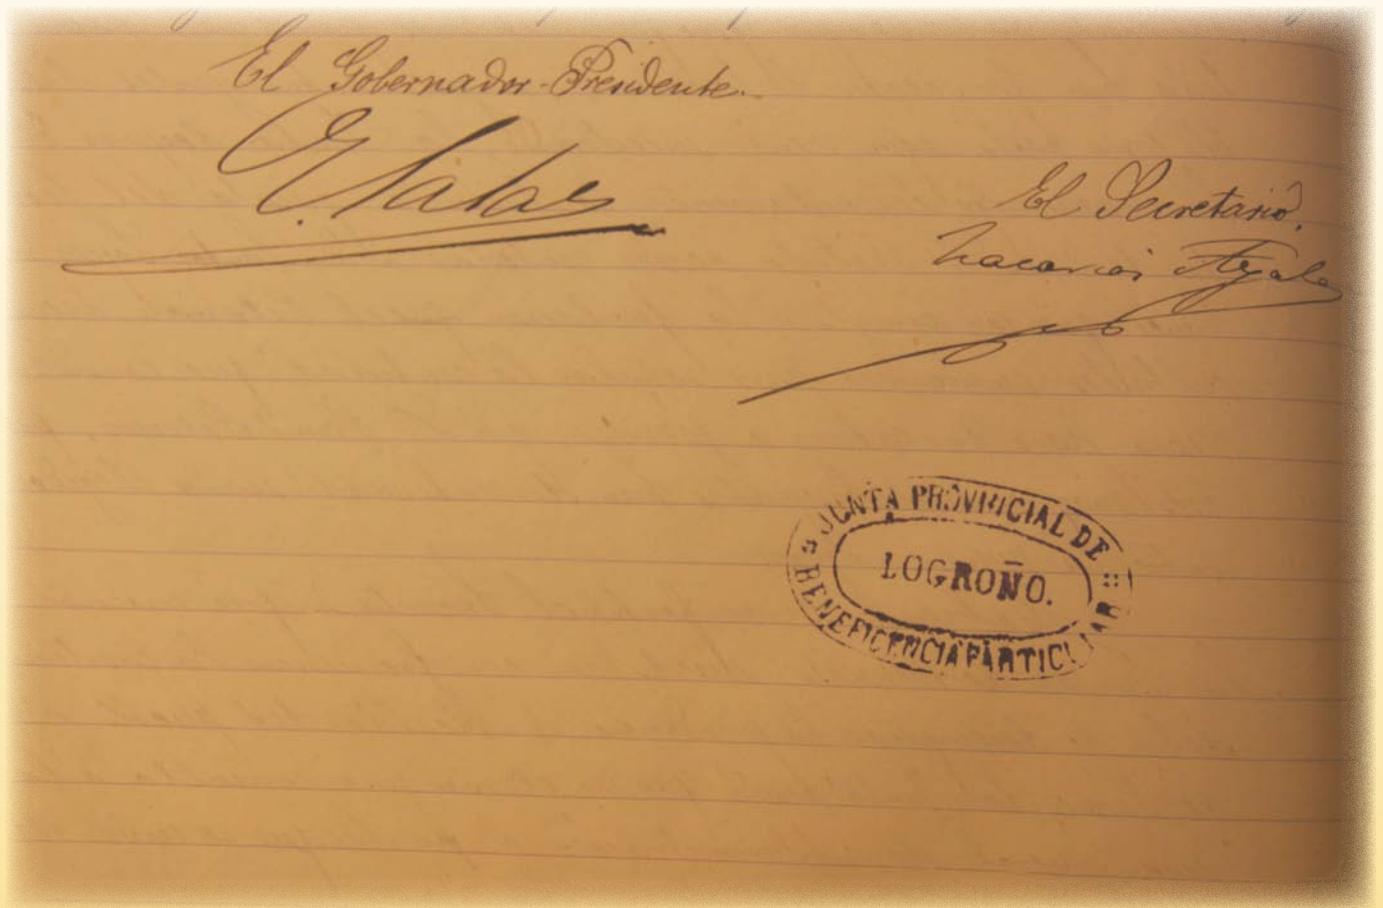 El Gobernador-Presidente.
E. Salas
El Secretario,
Zacarias Ayala
JUNTA PROVINCIAL DE
LOGROÑO.
BENEFICENCIA PARTICULAR